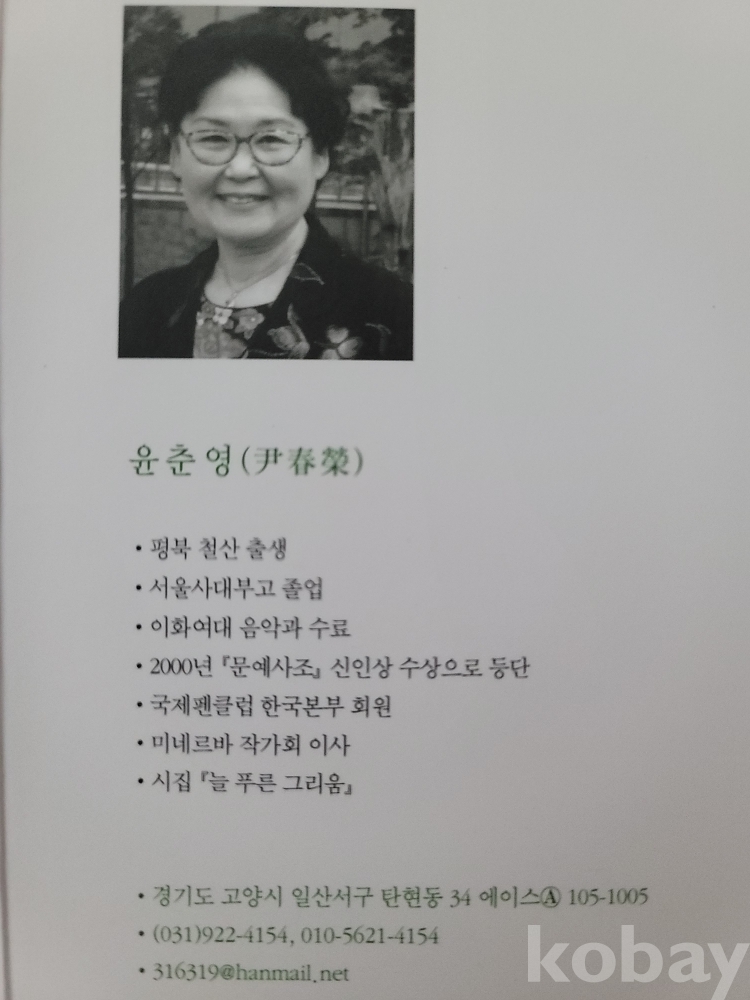 윤춘영(尹春榮)
• 평북 철산 출생
• 서울사대부고 졸업
• 이화여대 음악과 수료
• 2000년 『문예사조』 신인상 수상으로 등단
• 국제펜클럽 한국본부 회원
• 미네르바 작가회 이사
• 시집 『늘 푸른 그리움』
• 경기도 고양시 일산서구 탄현동 34 에이스Ⓐ 105-1005
• (031)922-4154, 010-5621-4154
• 316319@hanmail.net
kobay